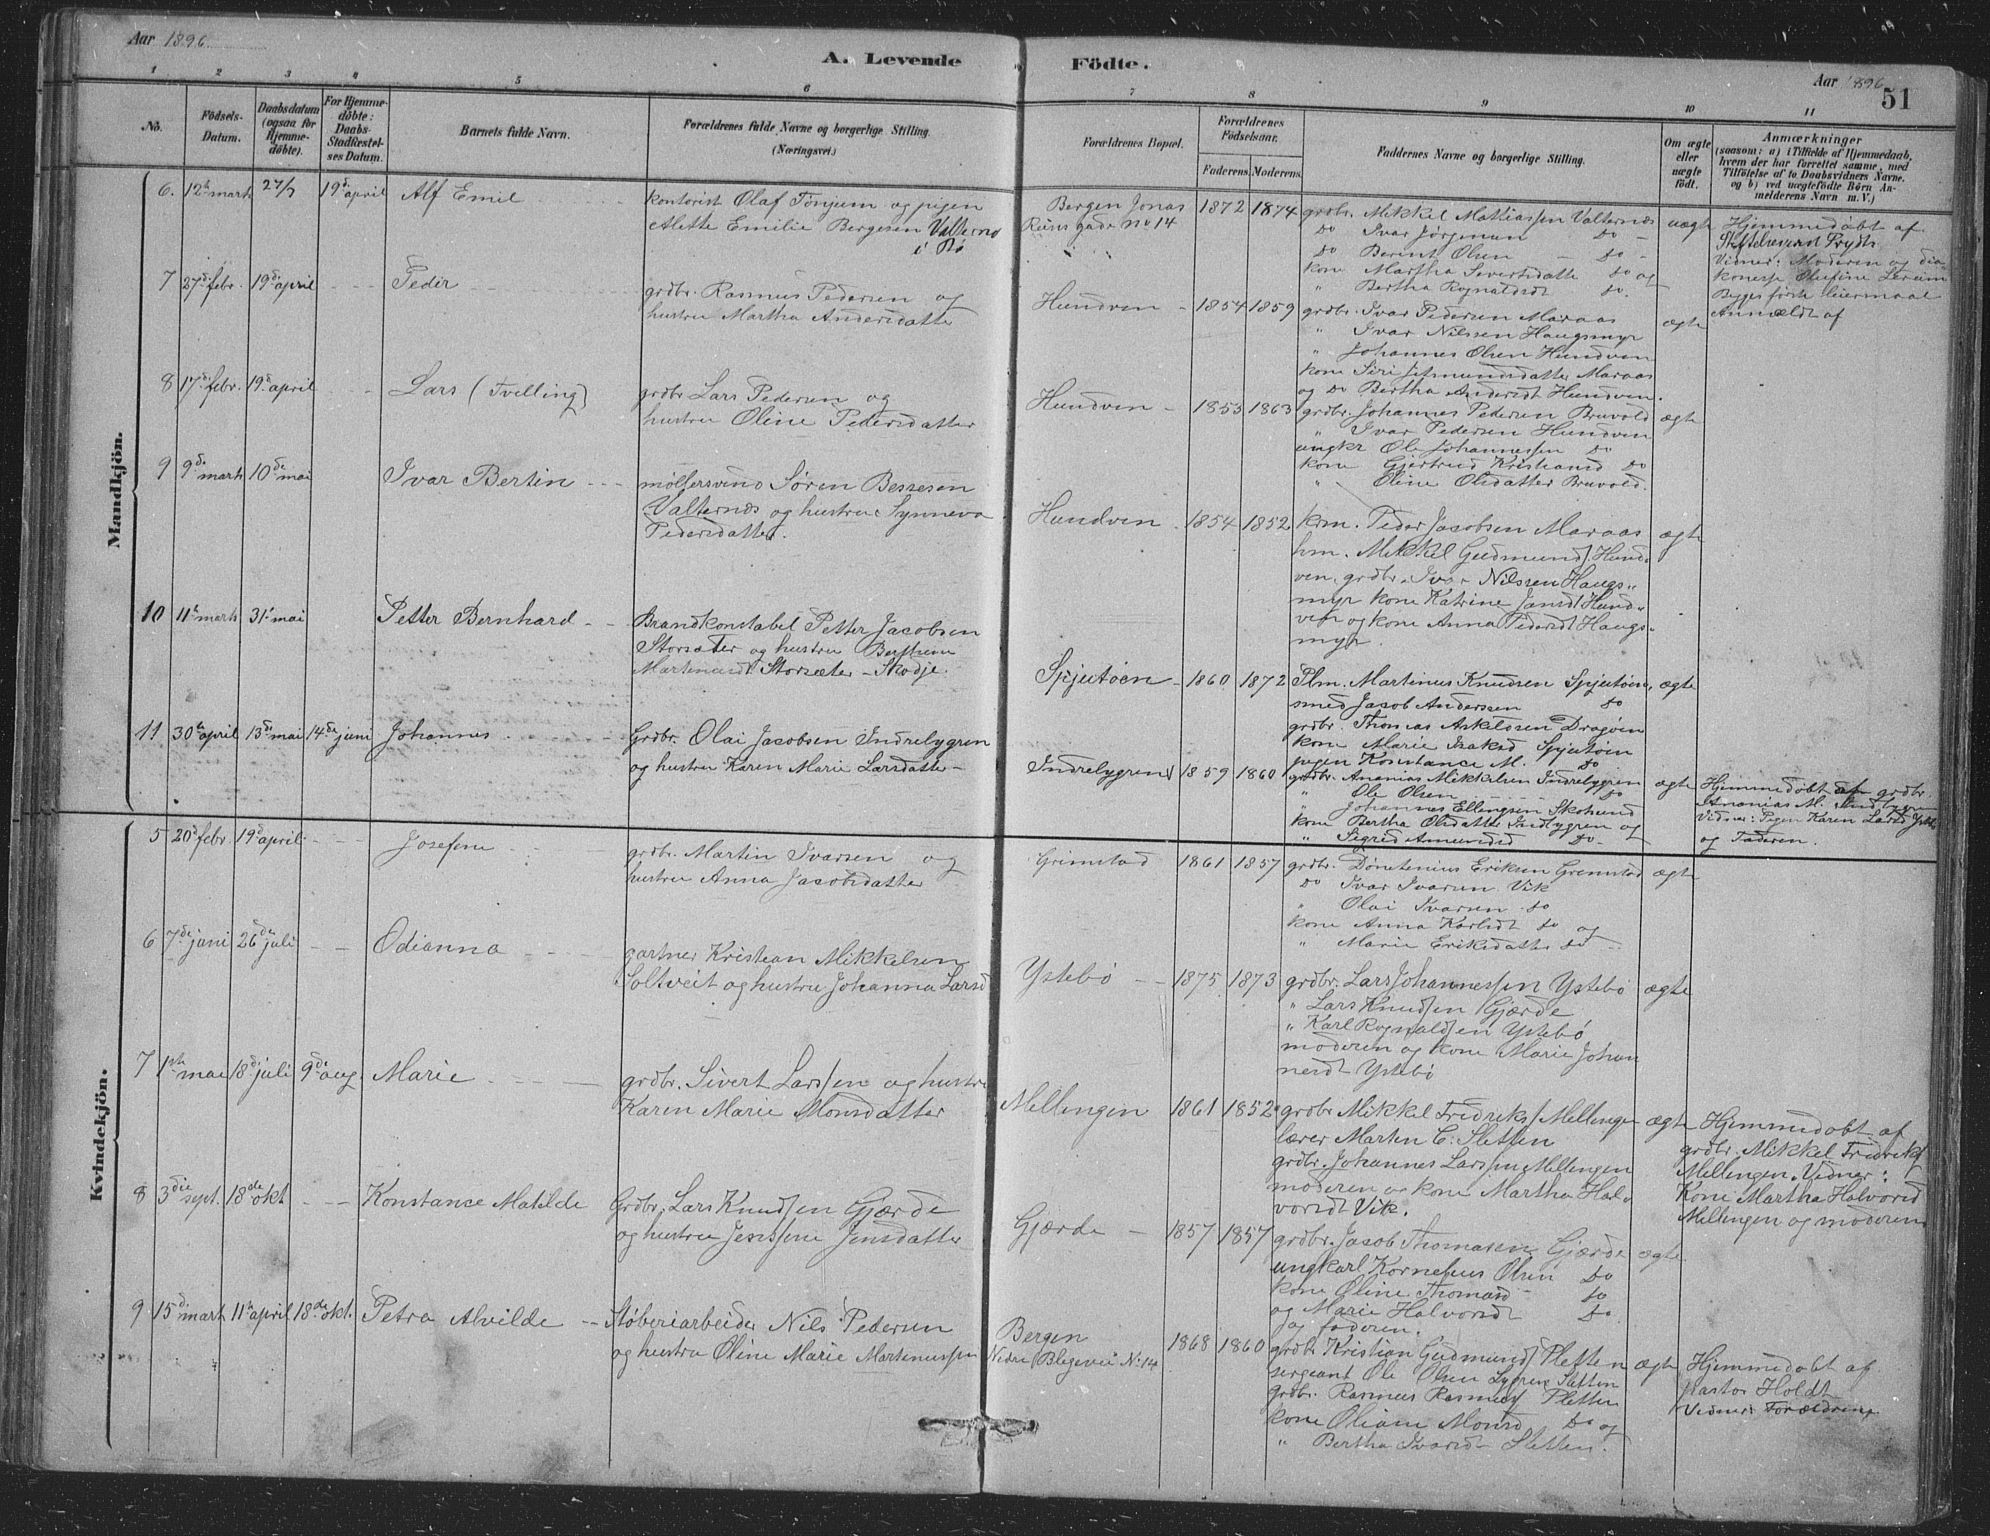 Aar 1896
A. Levende Födte.
Aar 1896
51
1 2 3 4 5 6 7 8 9 10 11
No.
Födsels-
Datum.
Daabsdatum
(ogsaa for
Hjemme-
döbte).
For Hjemme-
döbte:
Daabs-
Stadfæstel-
ses Datum.
Barnets fulde Navn.
Forældrenes fulde Navne og borgerlige Stilling.
(Næringsvei.)
Forældrenes Bopæl.
Forældrenes
Födselsaar.
Faderens. Moderens.
Faddernes Navne og borgerlige Stilling.
Om ægte
eller
uægte
födt.
Anmærkninger
(saasom: a) i Tilfælde af Hjemmedaab,
hvem der har forrettet samme, med
Tilföielse af to Daabsvidners Navne.
og b) ved uægtefödte Börn An-
melderens Navn m. V.)
Mandkjön.
6. 12te marts 27/3 19de april Alf Emil
kontorist Olaf Tønjum og pigen
Alette Emilie Bergesen Valternæs
i Bø
Bergen Jonas
Reins gade No 14
1872 1874
grdbr. Mikkel Mathiassen Valternæs
Do Ivar Jørgensen Do
Do Berent Olsen Do
kone Martha Sivertsdatter Do og
" Bertha Rognaldsdt Do.
uægte
Hjemmedøbt af
Stiftelsesprest Frydts
Vidner: Moderen og dia
konesse Olefine
Begges første leiermaal
Anmeldt af
7 27de febr. 19de april Peder
grdbr. Rasmus Pedersen og
hustru Martha Andersdatter
Hundven 1854 1859
grdbr. Ivar Pedersen Maraas
" Ivar Nilssen Haugsmyr
" Johannes Olsen Hundven
kone Siri Amundsdatter Maraas
og Do Bertha Andersdt Hundven.
ægte
8 17de febr. 19de april Lars (Tvilling)
grdbr Lars Pedersen og
hustru Oline Pedersdatter
Hundven 1853 1863
grdbr. Johannes Pedersen Bruvold
" Ivar Pedersen Hundven
ungkr Ole Johannessen Do
kone Gjertrud Kristiansd Do
" Oline Olsdatter Bruvold.
ægte
9 9de marts 10de mai Ivar Bertin
møllersvend Søren Bessesen
Valternæs og hustru Synneva
Pedersdatter.
Hundven 1854 1852
krm. Peder Jacobsen Maraas
hm. Mikkel Gudmunds. Hund-
ven, grdbr. Ivar Nilssen Haugs-
myr kone Katrine Jansdt Hund-
ven og kone Anna Pedersdt Haugs-
myr.
ægte
10 11te marts 31te mai Petter Bernhard
Brandkonstabel Petter Jacobsen
Storsæter og hustru Berthine
Martinusdt Storsæter - Skodje.
Spjutøen 1860 1872
Plm. Martinus Knudsen Spjutøen,
smed Jacob Anderssen Do
grdbr. Thomas Askelsen Dragøen
kone Marie Isaksd Spjutøen
pigen Konstance M. Do
ægte
11 30te april 13de mai 14de juni Johannes
Grdbr. Olai Jacobsen Indrebygren
og hustru Karen Marie Larsdatter
Indrebygren 1859 1860
grdbr. Ananias Mikkelsen Indrebygren
" Ole Olsen Do
" Johannes Ellingsen Skohund
kone Bertha Olsdatter Indbygren og
" Sigrid Amundsd Do.
ægte
Hjemmedøbt af grdbr.
Ananias M. Indbygren
Vidner: Pigen Karen Larsd
og Faderen.
Kvindekjön.
5 20de febr 19de april Josefine
grdbr. Martin Ivarsen og
hustru Anna Jacobsdatter
Grimstad 1861 1857
grdbr. Dønetenius Eriksen Grimstad
Do Ivar Ivarsen Vik
" Olai Ivarsen Do
kone Anna Karlsdt Do og
" Marie Eriksdatter Do
ægte
6 7de juni 26de juli Odianna
gartner Kristian Mikkelsen
Soltveit og hustru Johanna Larsd
Ystebø 1875 1873
grdbr. Lars Johannessen Ystebø
" Lars Knudsen Gjærde
" Karl Rognaldsen Ystebø
moderen og kone Marie Johan
nesdt Ystebø
ægte
7 1ste mai 18de juli 9de aug. Marie
grdbr. Sivert Larssen og hustru
Karen Marie Monsdatter
Mellingen 1861 1852
grdbr Mikkel Fredriks. Mellingen
lærer Marten C. Sletten
grdbr. Johannes Larssen Mellingen
moderen og kone Martha Hal-
vorsdt Vik.
ægte
Hjemmedøbt af
grdbr. Mikkel Fredriks.
Mellingen. Vidner:
Kone Martha Halvorsd
Mellingen og moderen
8 3die sept. 18de okt Konstance Matilde
Grdbr. Lars Knudsen Gjærde
og hustru Jensdatter
Gjærde 1857 1857
grdbr. Jacob Thomasen Gjærde
ungkarl Kornelius Olsen Do
kone Oline Thomasd Do
og Marie Halvorsdt Do
og faderen.
ægte
9 15de marts 11te april 18de okt. Petra Alvilde
Støberiarbeider Nils Pedersen
og hustru Oline Marie Martinussen
Bergen
Nedre Blegevei No 14
1868 1860
grdbr Kristian Gudmunds. Sletten
sergeant Ole Olsen Sletten
grdbr. Rasmus Rasmus. Sletten
kone Oliane Monsd Do og
" Bertha Ivarsd Sletten.
ægte
Hjemmedøbt af
pastor Holdt
Vidner: Forældrene